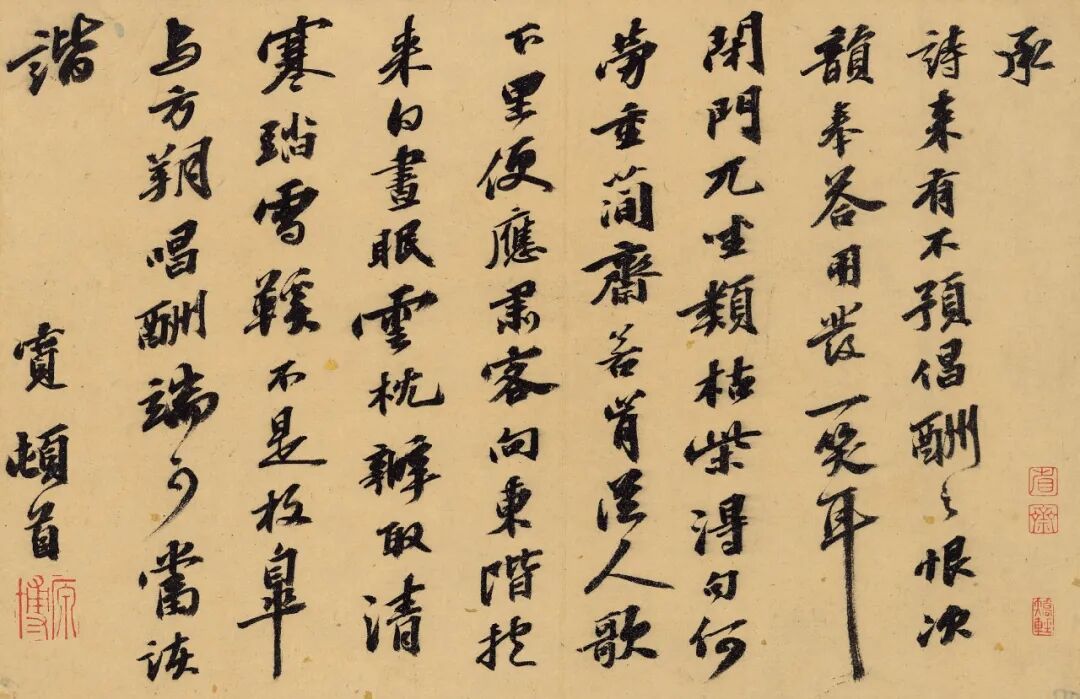 承
詩来有不預倡酬之恨次
韻奉答用發一笑耳
閉門兀坐類枯柴得句何
勞重簡齋若肯從人歌
下里便應肅客向東階抱
来白晝眠雲枕辦取清
寒踏雪鞵不是枚皋
与方朔唱酬端可當詼
諧 寬頓首
原博